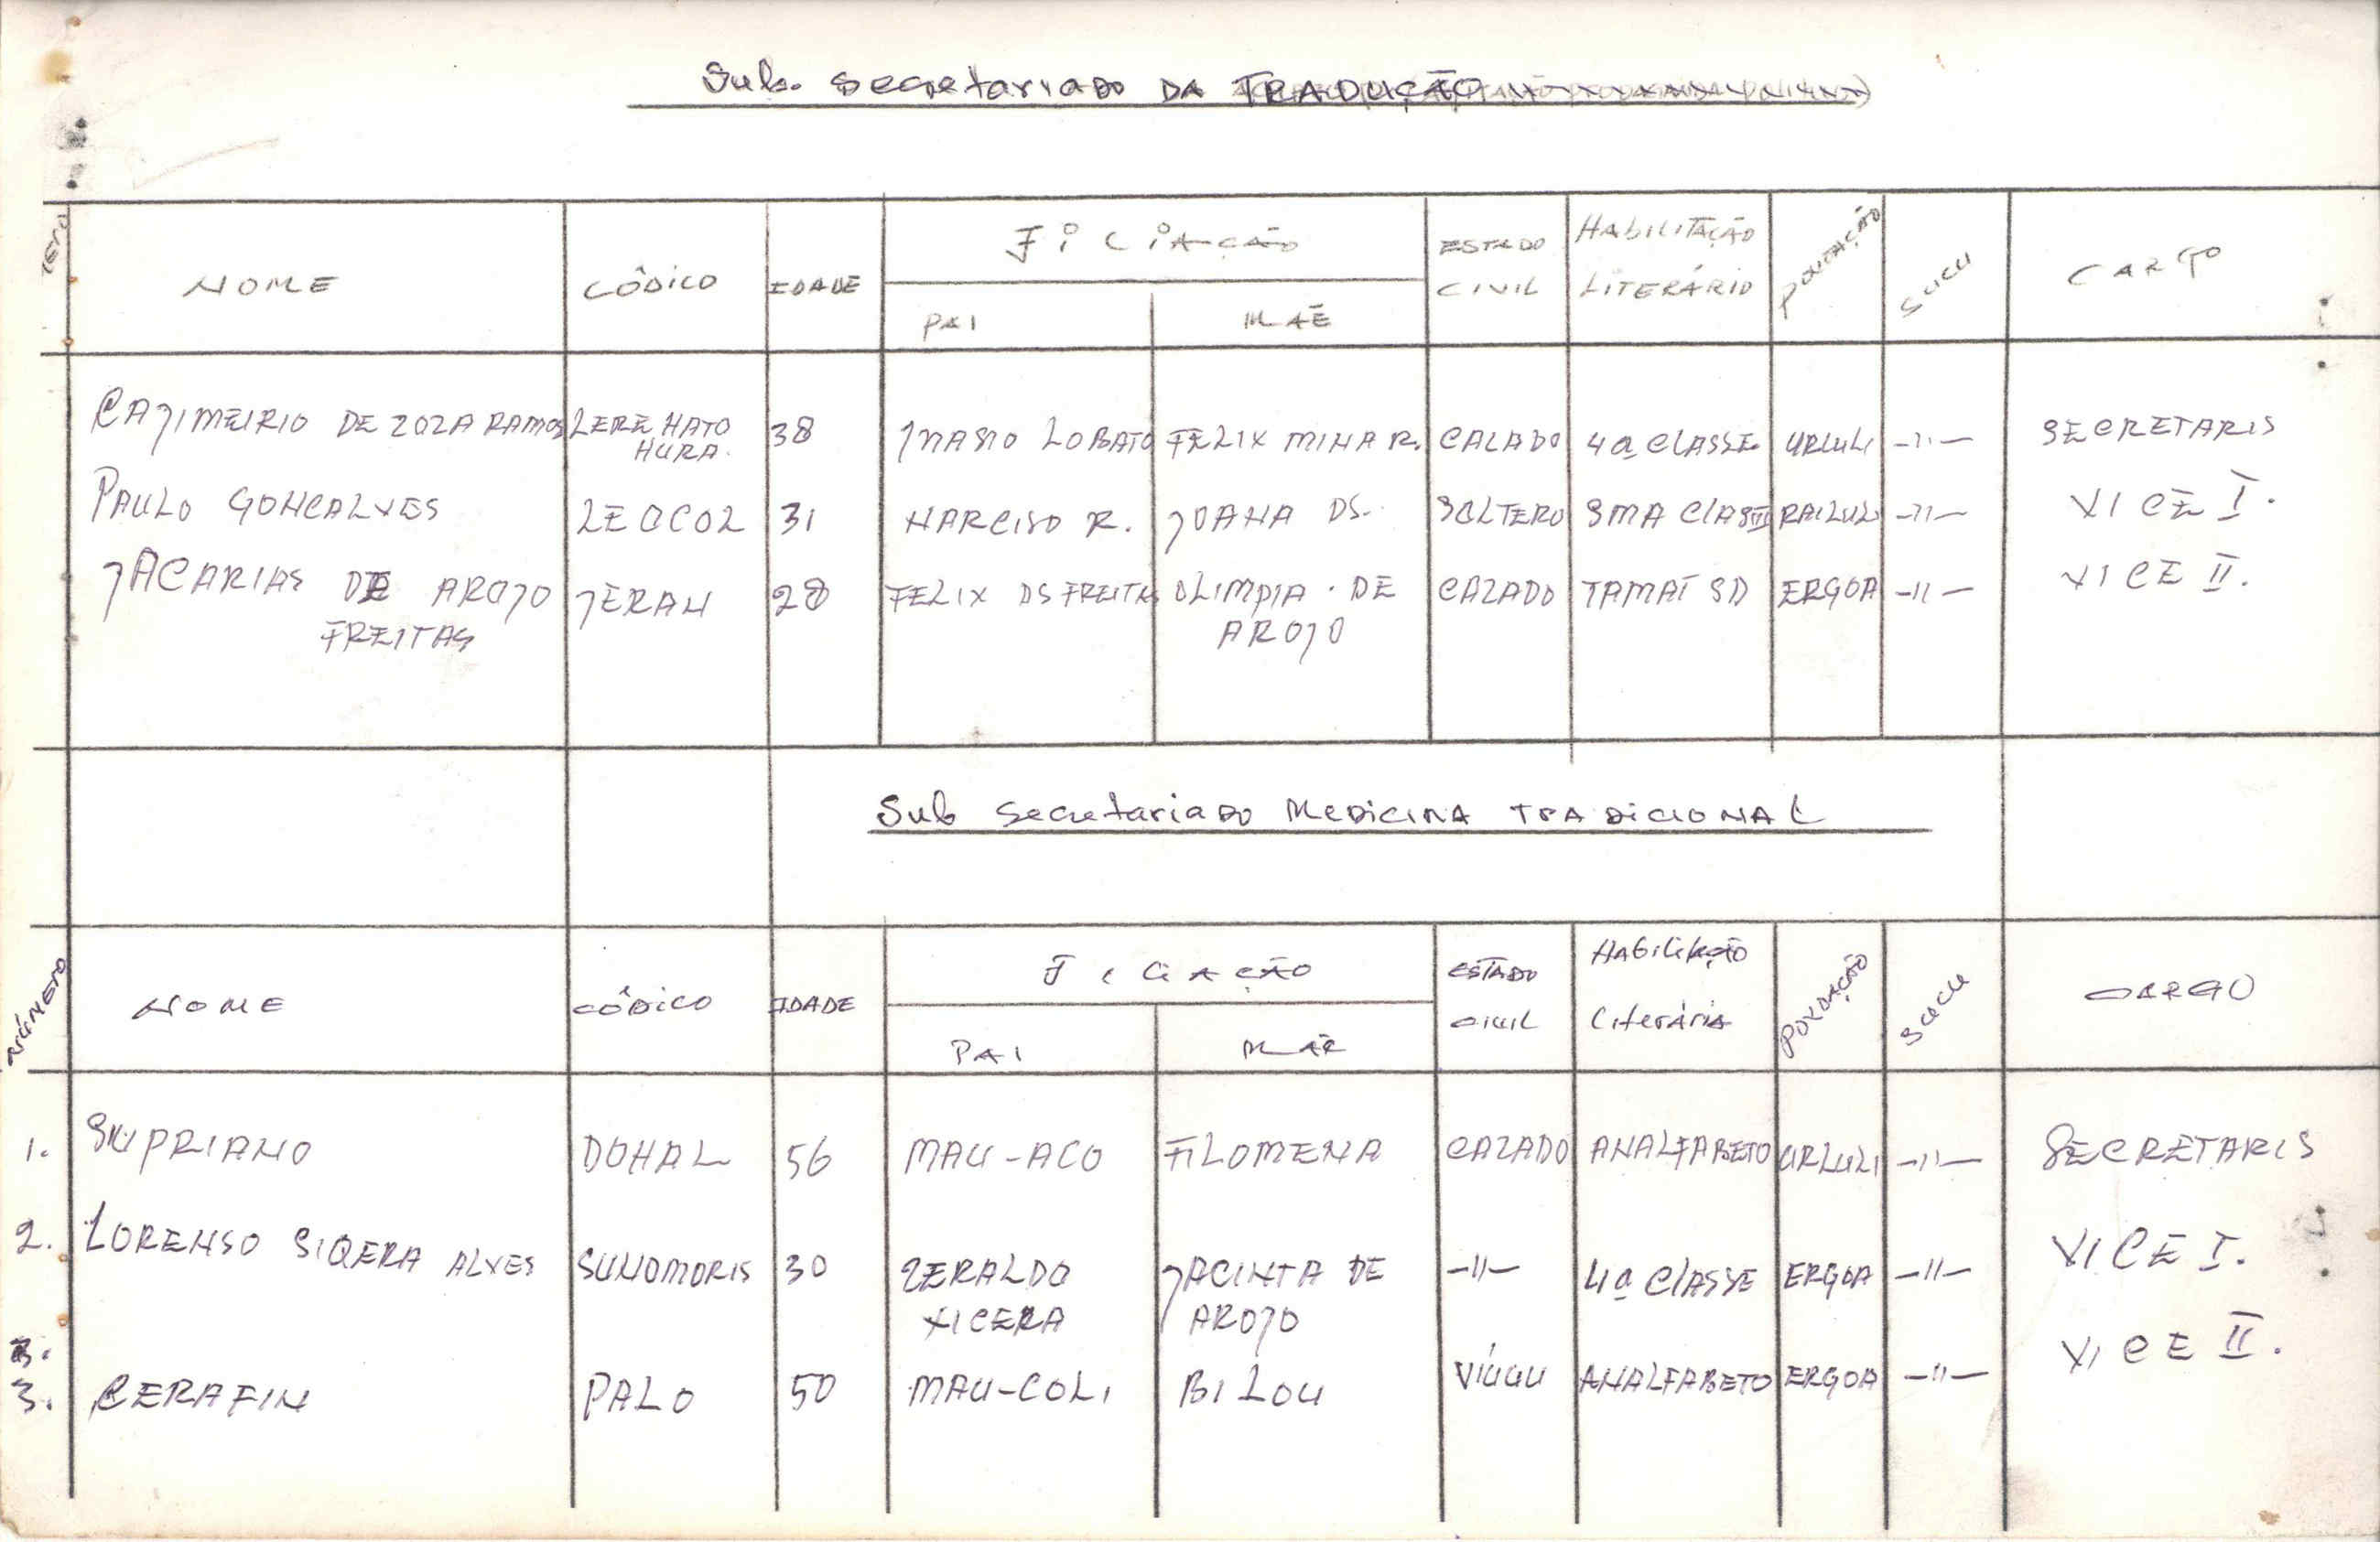 Sub. Secretariado DA TRADUÇÃO
NOME CÔDICO IDADE FiLiAÇÃO ESTADO CIVIL HABILITAÇÃO LITERÁRIO POVOAÇÃO SUCU CARGO
PAI MÃE
CAJIMEIRIO DE ZOZA RAMOS LERE HATO 38 INASIO LOBATO FELIX MINA R. CAZADO 4a CLASSE URLULI -"- SECRETARIS
HURA.
PAULO GONCALVES LEOCOL 31 NARCISO R. JOANA DS. SOLTERO SMA CLASSE RAILULI -"- VICE I.
JACARIAS DE AROJO JERAN 28 FELIX DS FREITAS OLIMPIA. DE CAZADO TAMAT SD ERGOA -"- VICE II.
FREITAS AROJO
Sub Secretariado Medicina TRADICIONAL
NÚMERO NOME CÔDICO IDADE FiLiAÇÃO ESTADO CIVIL Habilitação Literária POVOAÇÃO SUCU CARGO
PAI MÃE
1. SUPRIANO DOHAL 56 MAU-ACO FILOMENA CAZADO ANALFABETO URLULI -"- SECRETARIS
2. LORENSO SIQERA ALVES SUNOMORIS 30 ZERALDO JACINTA DE -"- 4a CLASSE ERGOA -"- VICE I.
XICERA AROJO
3. CERAFIN PALO 50 MAU-COLI BILOU VÍUUU ANALFABETO ERGOA -"- VICE II.